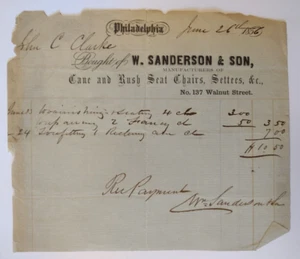 Philadelphia June 26th 1856
John C Clarke
Bought of W. SANDERSON & SON,
MANUFACTURERS OF
Cane and Rush Seat Chairs, Settees, &c.,
No. 137 Walnut Street.
Seating 4 ch 3.00
2 ch 50 3 50
24 arm ch 7.00
$10.50
Rec Payment
Wm Sanderson & Son